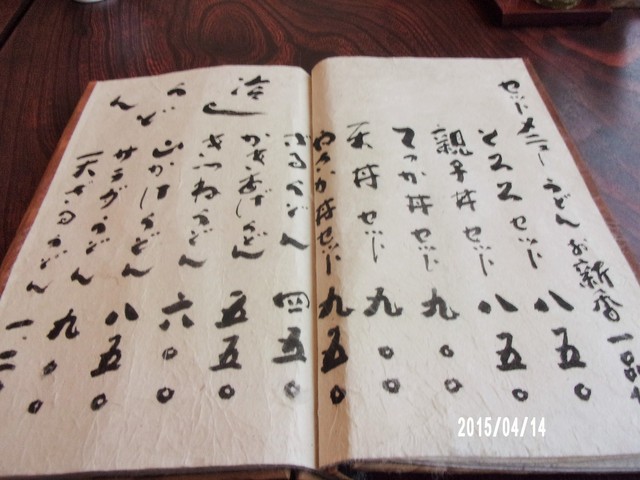 セットメニュー うどんお新香 一品付
とろろセット 八五〇
親子丼セット 八五〇
てっか丼セット 九〇〇
天丼セット 九〇〇
丼セット 九五〇
冷しうどん
ざるうどん 四五〇
かきあげうどん 五五〇
きつねうどん 六〇〇
山かけうどん 八五〇
サラダうどん 九〇〇
天ざるうどん 一、二〇
2015/04/14